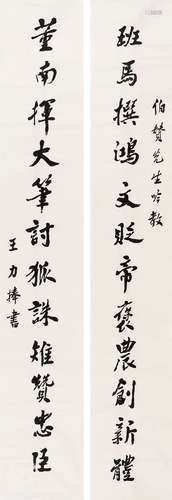 伯贊先生吟教
班馬撰鴻文貶帝褒農創新體
董南揮大筆討狐誅雉贊忠臣
王力捧書